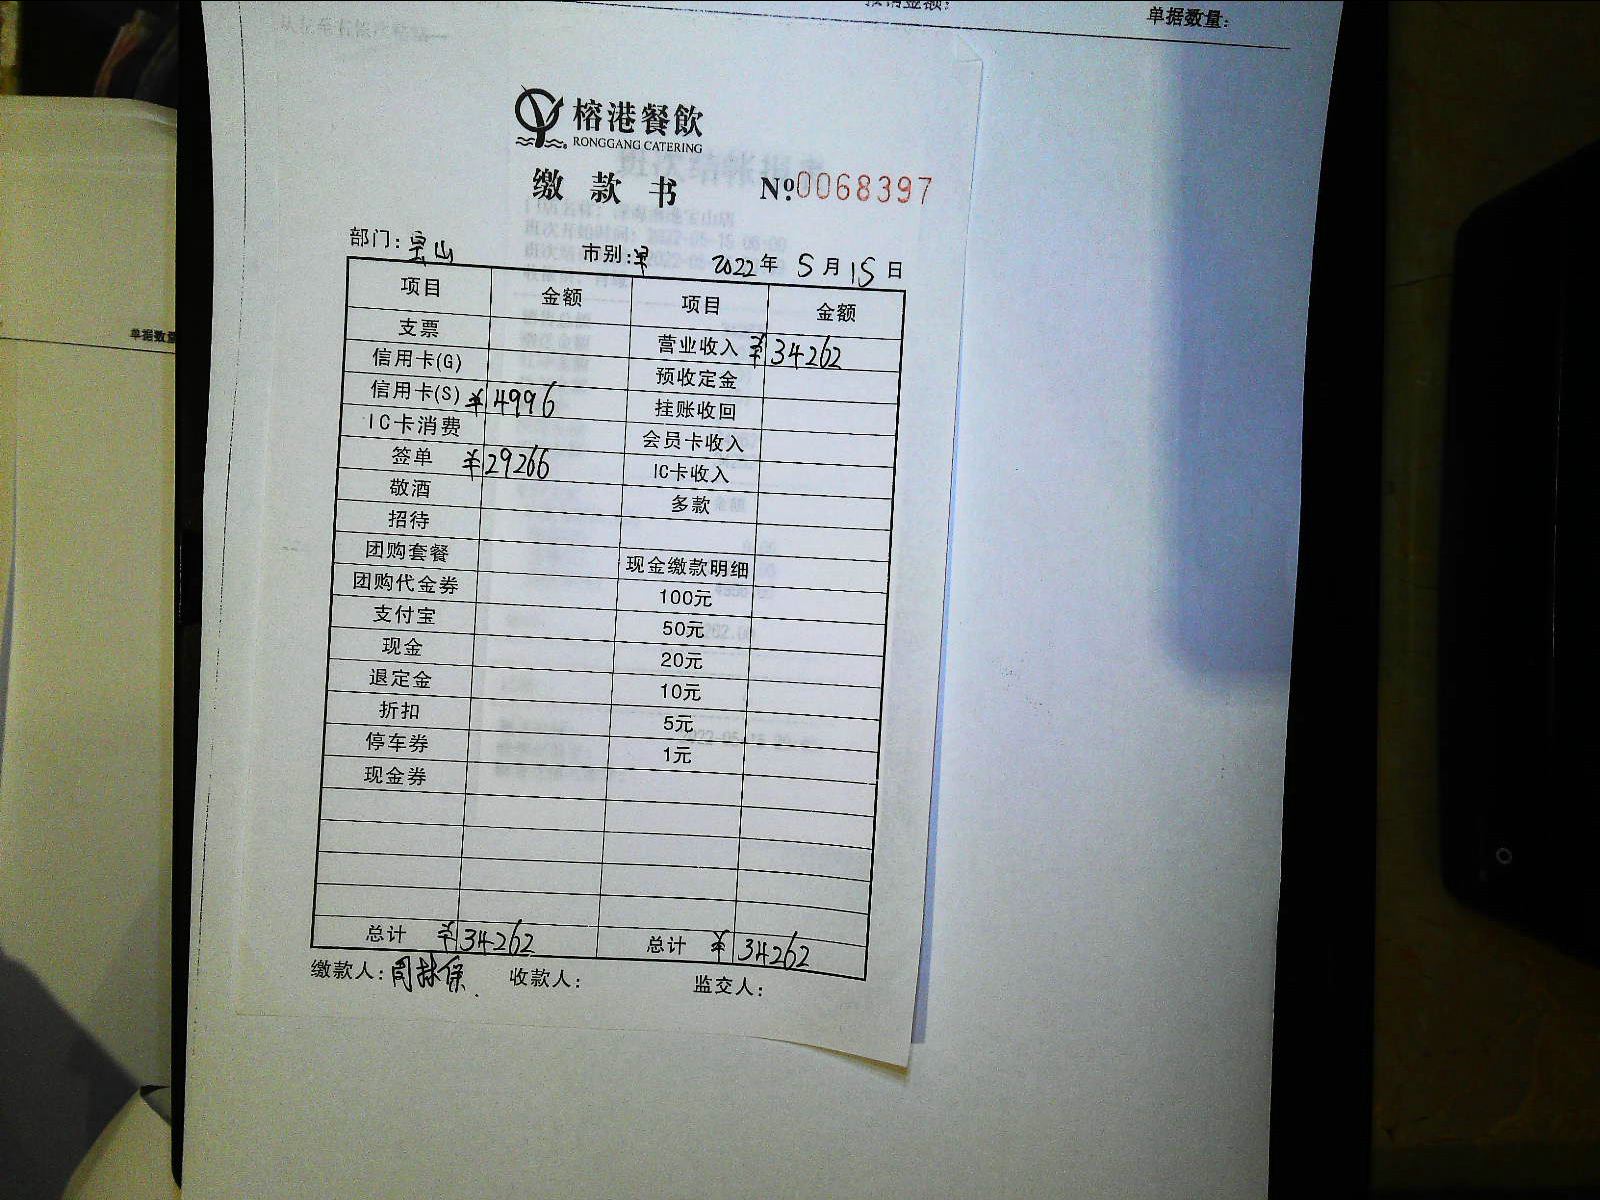 单据数量:
榕港餐飲
RONGGANG CATERING
缴款书 №:0068397
部门:宝山 市别:早 2022年5月15日
项目 金额 项目 金额
支票 营业收入 ¥34262
信用卡(G) 预收定金
信用卡(S) ¥4996 挂账收回
IC卡消费 会员卡收入
签单 ¥29266 IC卡收入
敬酒 多款
招待
团购套餐 现金缴款明细
团购代金券 100元
支付宝 50元
现金 20元
退定金 10元
折扣 5元
停车券 1元
现金券
总计 ¥34262 总计 ¥34262
缴款人: 收款人: 监交人: